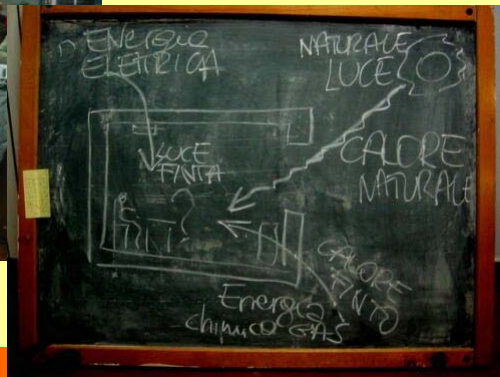 ENERGIA
ELETRICA
NATURALE
LUCE
LUCE
FINTA
CALORE
NATURALE
?
CALORE
FINTO
Energia
chimica GAS